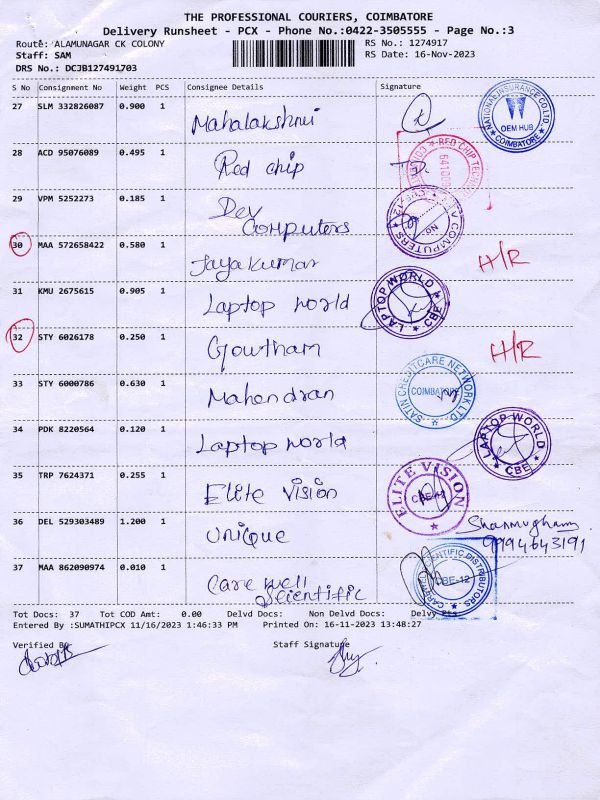 THE PROFESSIONAL COURIERS, COIMBATORE
Delivery Runsheet - PCX - Phone No.:0422-3505555 - Page No.:3
Route: ALAMUNAGAR CK COLONY RS No.: 1274917
Staff: SAM RS Date: 16-Nov-2023
DRS No.: DCJB127491703
S No Consignment No Weight PCS Consignee Details Signature
27 SLM 332826087 0.900 1 Mahalakshmi
NATIONAL INSURANCE CO.LTD. OEM HUB COIMBATORE
28 ACD 95076089 0.495 1 Red chip
RED CHIP 641008
29 VPM 5252273 0.185 1 Dev Computers
DEV COMPUTERS
30 MAA 572658422 0.580 1 Jayakumar H/R
31 KMU 2675615 0.905 1 Laptop world
LAPTOP WORLD CBE
32 STY 6026178 0.250 1 Gowtham H/R
33 STY 6000786 0.630 1 Mahendran
SATIN CREDITCARE NETWORK LTD COIMBATORE
34 PDK 8220564 0.120 1 Laptop world
LAPTOP WORLD CBE
35 TRP 7624371 0.255 1 Elite Vision
ELITE VISION
36 DEL 529303489 1.200 1 Unique Shanmugham
9994643191
37 MAA 862090974 0.010 1 Care well Scientific
SCIENTIFIC DISTRIBUTORS CBE-12
Tot Docs: 37 Tot COD Amt: 0.00 Delvd Docs: Non Delvd Docs: Delvy
Entered By :SUMATHIPCX 11/16/2023 1:46:33 PM Printed On: 16-11-2023 13:48:27
Verified By Staff Signature